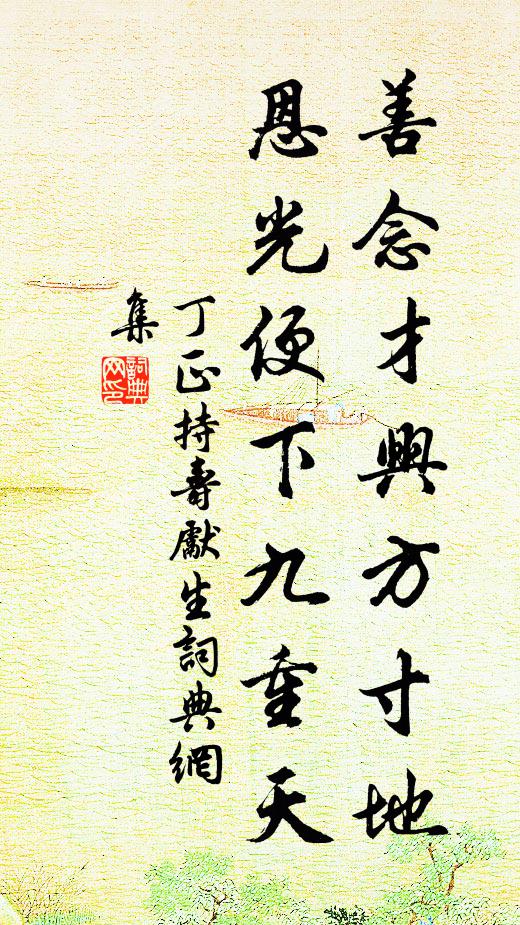 善念才興方寸地
恩光便下九重天
丁正持壽獻生詞典網
集
詞典
网印